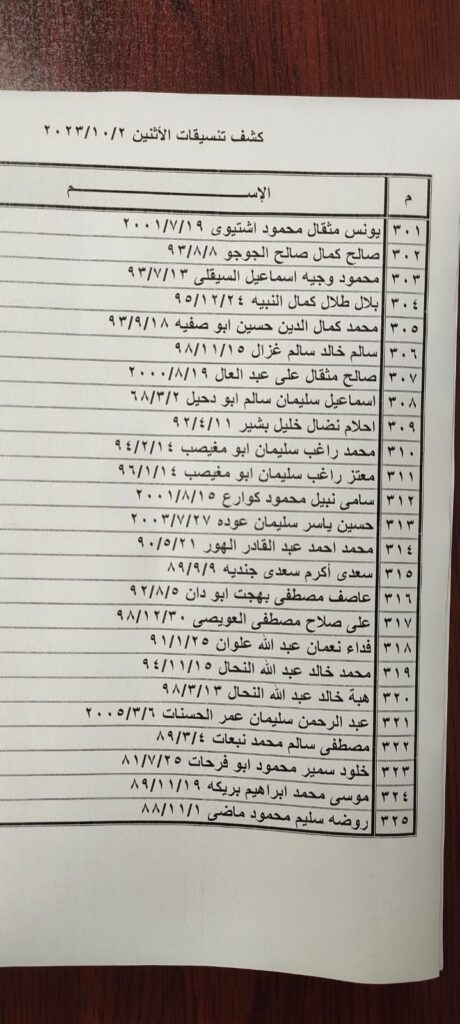 كشف تنسيقات الأثنين ٢٠٢٣/١٠/٢
م الإســـم
٣٠١ يونس مثقال محمود اشتيوى ٢٠٠١/٧/١٩
٣٠٢ صالح كمال صالح الجوجو ٩٣/٨/٨
٣٠٣ محمود وجيه اسماعيل السيقلى ٩٣/٧/١٣
٣٠٤ بلال طلال كمال النبيه ٩٥/١٢/٢٤
٣٠٥ محمد كمال الدين حسين ابو صفيه ٩٣/٩/١٨
٣٠٦ سالم خالد سالم غزال ٩٨/١١/١٥
٣٠٧ صالح مثقال على عبد العال ٢٠٠٠/٨/١٩
٣٠٨ اسماعيل سليمان سالم ابو دحيل ٦٨/٣/٢
٣٠٩ احلام نضال خليل بشير ٩٢/٤/١١
٣١٠ محمد راغب سليمان ابو مغيصب ٩٤/٢/١٤
٣١١ معتز راغب سليمان ابو مغيصب ٩٦/١/١٤
٣١٢ سامى نبيل محمود كوارع ٢٠٠١/٨/١٥
٣١٣ حسين ياسر سليمان عوده ٢٠٠٣/٧/٢٧
٣١٤ محمد احمد عبد القادر الهور ٩٠/٥/٢١
٣١٥ سعدى أكرم سعدى جنديه ٨٩/٩/٩
٣١٦ عاصف مصطفى بهجت ابو دان ٩٢/٨/٥
٣١٧ على صلاح مصطفى العويصى ٩٨/١٢/٣٠
٣١٨ فداء نعمان عبد الله علوان ٩١/١/٢٥
٣١٩ محمد خالد عبد الله النحال ٩٤/١١/١٥
٣٢٠ هبة خالد عبد الله النحال ٩٨/٣/١٣
٣٢١ عبد الرحمن سليمان عمر الحسنات ٢٠٠٥/٣/٦
٣٢٢ مصطفى سالم محمد نبعات ٨٩/٣/٤
٣٢٣ خلود سمير محمود ابو فرحات ٨١/٧/٢٥
٣٢٤ موسى محمد ابراهيم بريكه ٨٩/١١/١٩
٣٢٥ روضه سليم محمود ماضى ٨٨/١١/١